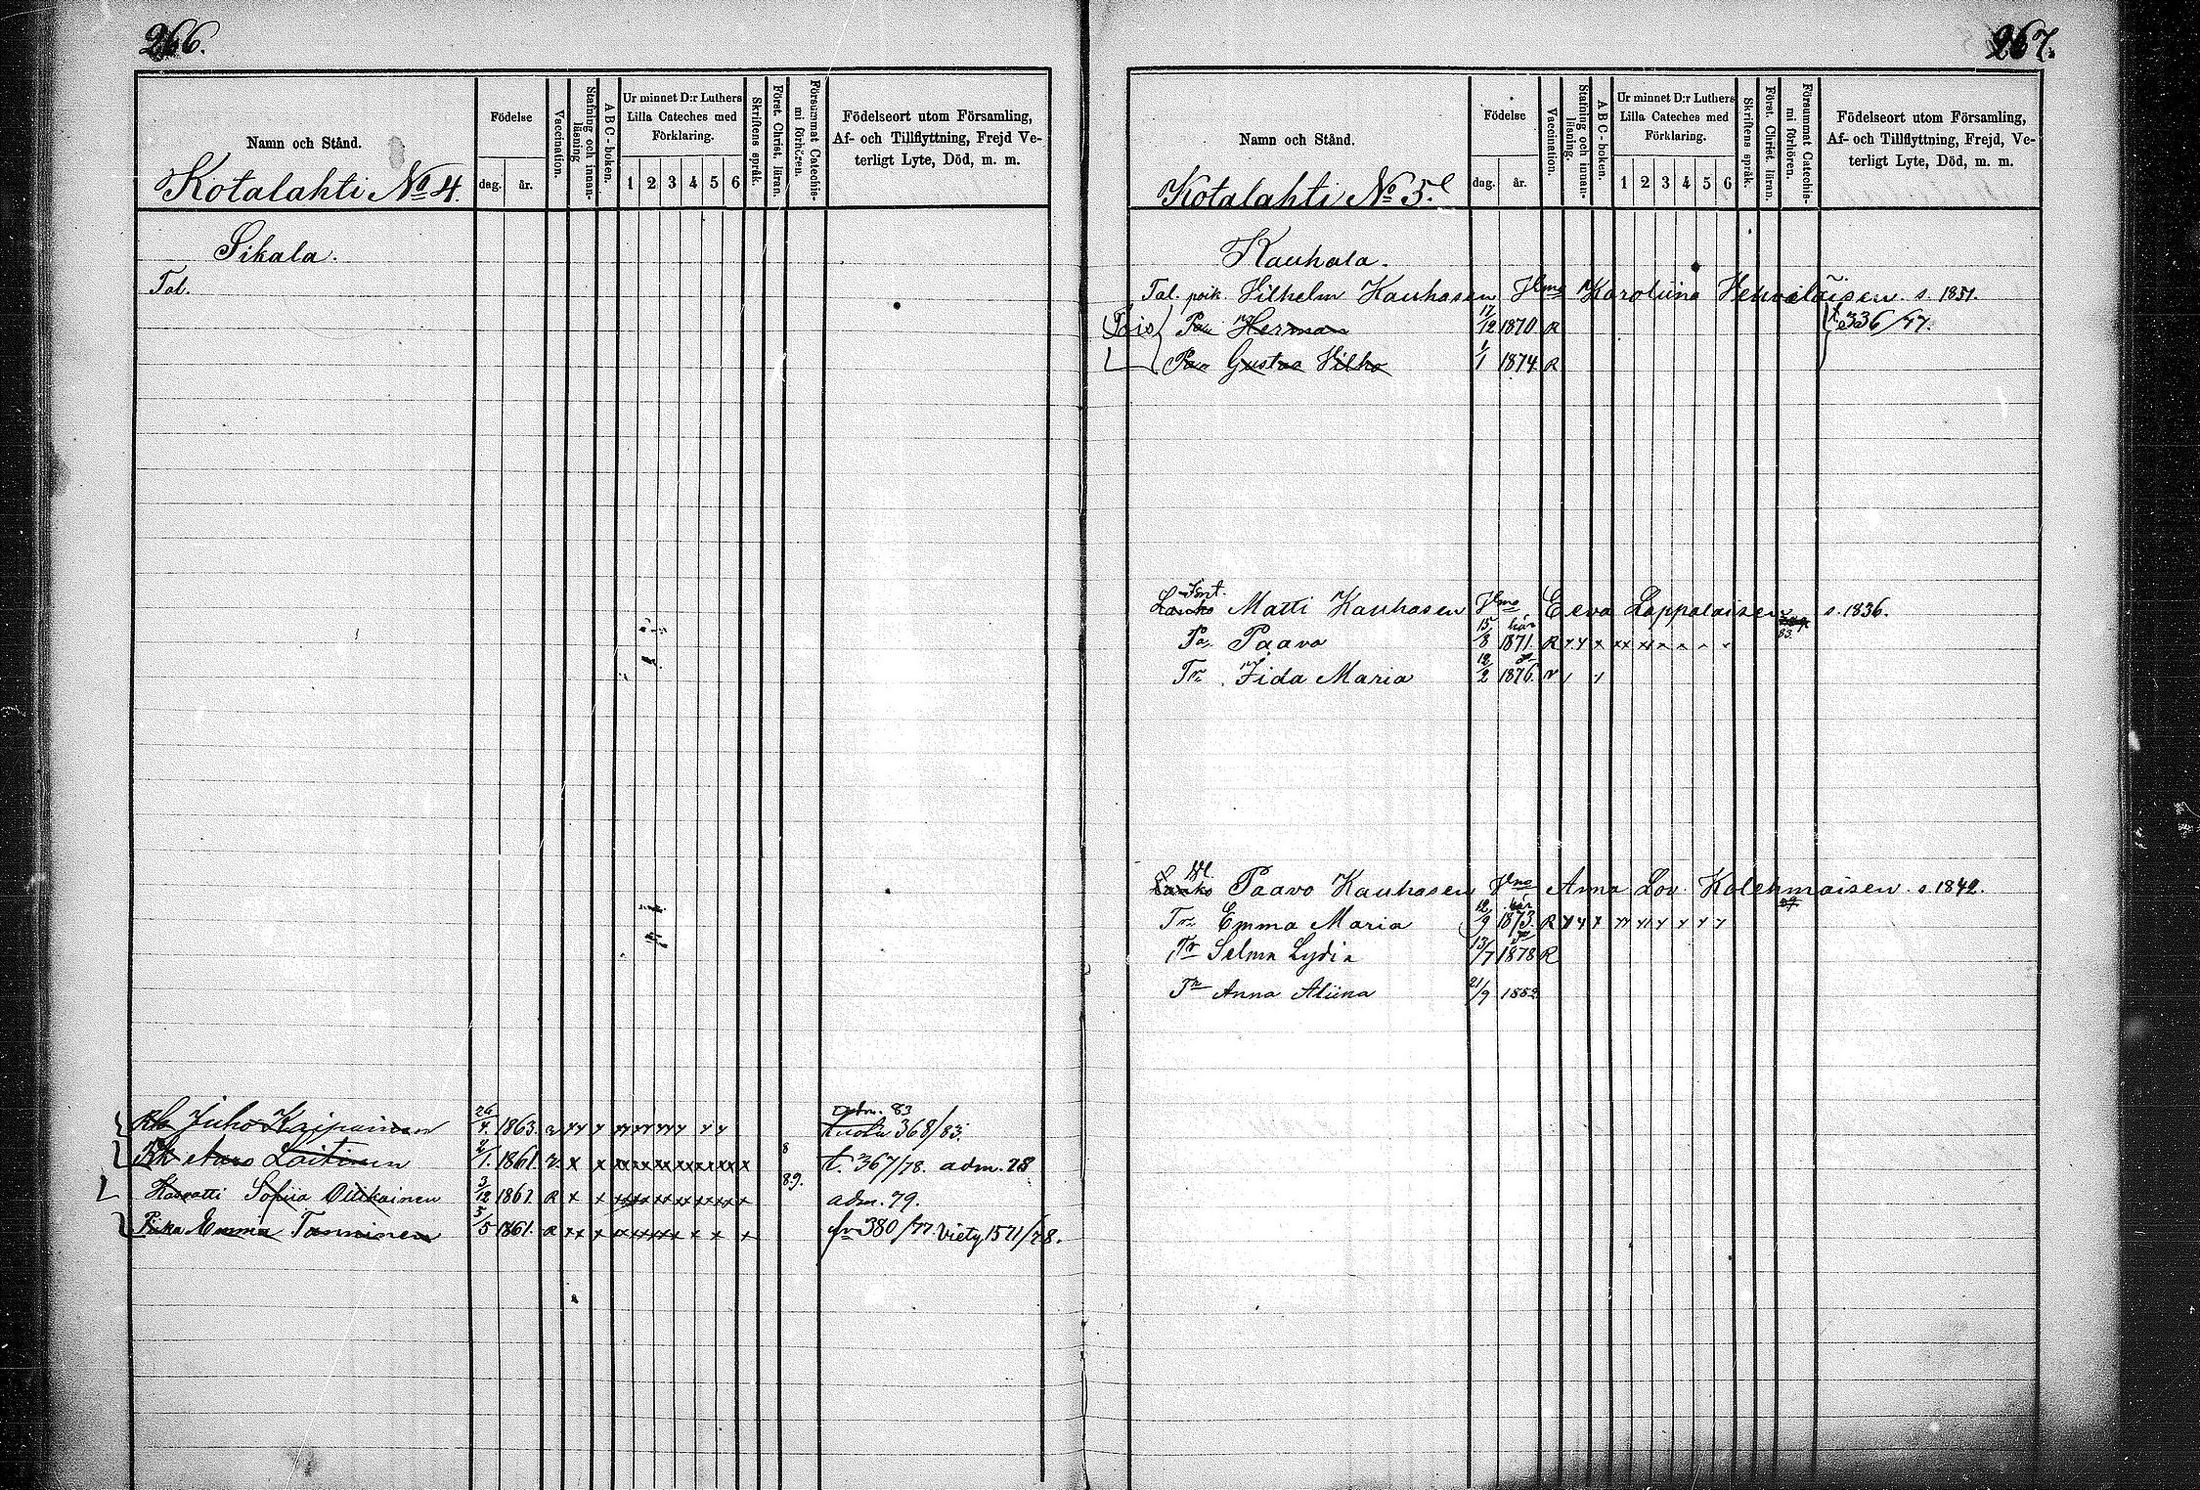 266.
Namn och Stånd.
Födelse
dag. år.
Vaccination.
Stafning och innanläsning
ABC-boken.
Ur minnet D:r Luthers Lilla Cateches med Förklaring.
1 2 3 4 5 6
Skriftens språk.
Först. Christ. läran.
Försummat Catechismi förhören.
Födelseort utom Församling, Af- och Tillflyttning, Frejd Veterligt Lyte, Död, m. m.
Kotalahti No 4.
Sikala.
Tal.
Juho Kaipainen 26/4. 1863. adm. 83 368/83.
Laitinen 2/1. 1861. t. 367/78. adm. 78
8
89.
Sofiia Ollikainen 3/12 1861. R adm. 79.
Piika Emma Tanninen 5/5 1861. R 380/77. Viety 1571/78.
267.
Namn och Stånd.
Födelse
dag. år.
Vaccination.
Stafning och innanläsning.
ABC-boken.
Ur minnet D:r Luthers Lilla Cateches med Förklaring.
1 2 3 4 5 6
Skriftens språk.
Först. Christ. läran.
Försummat Catechismi förhören.
Födelseort utom Församling, Af- och Tillflyttning, Frejd, Veterligt Lyte, Död, m. m.
Kotalahti No 5.
Kauhala.
Tal. poik. Vilhelm Kauhasen Karoliina s. 1851.
Pois Herman 17/12 1870 R t. 336/77.
Gustaa Vilho 1/1 1874 R
Matti Kauhasen Eeva Lappalaisen s. 1836.
Po. Paavo 15/8 1871. R
83.
Tr. Iida Maria 12/2 1876.
Paavo Kauhasen Anna Lov. Kolehmaisen s. 1842.
Tr. Emma Maria 12/9 1873. R
Tr Selma Lydia 13/7 1878 R
Tr Anna Aliina 21/9 1882